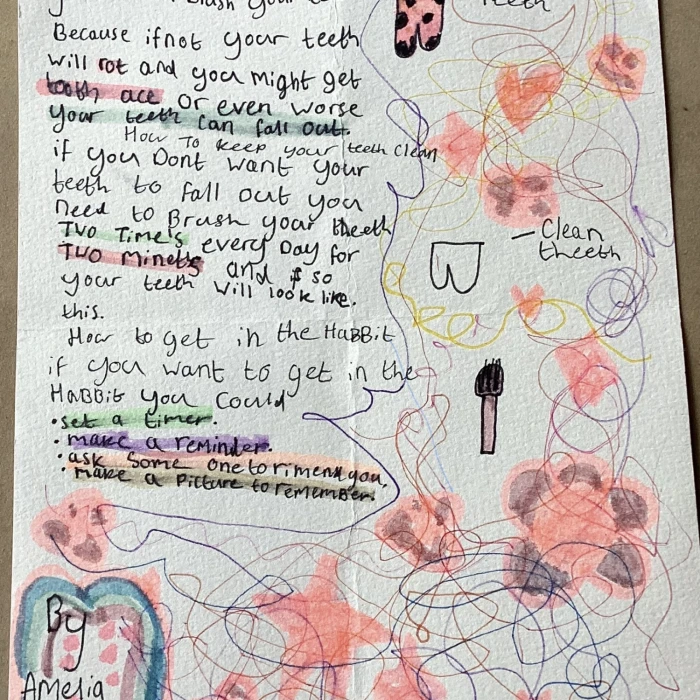 Brush your
teeth
Because if not your teeth
will rot and you might get
tooth ace or even worse
your teeth can fall out.
How To keep your teeth clean
if you Dont want your
teeth to fall out you
need to Brush your theeth
Two Time's every Day for
Two Minets and if so
your teeth will look like.
this.
Clean
theeth
How to get in the HaBBit
if you want to get in the
HaBBit you Could
• set a timer.
• make a reminder.
• ask some one to rimend you.
• make a picture to rememBer.
By
Amelia